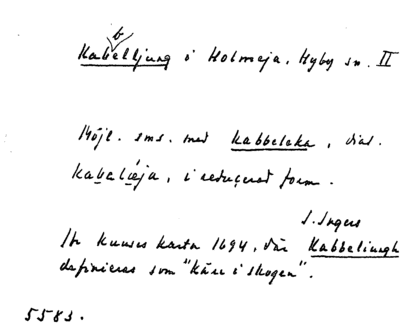 b
Kabelljung i Holmeja, Hyby sn. II
Möjl. sms. med kabbeleka, dial.
kabaläja, i reducerad form.
S. Ingers
Jfr Kuuses karta 1694, där Kabbeliungh
definieras som "Kärr i skogen".
5583.